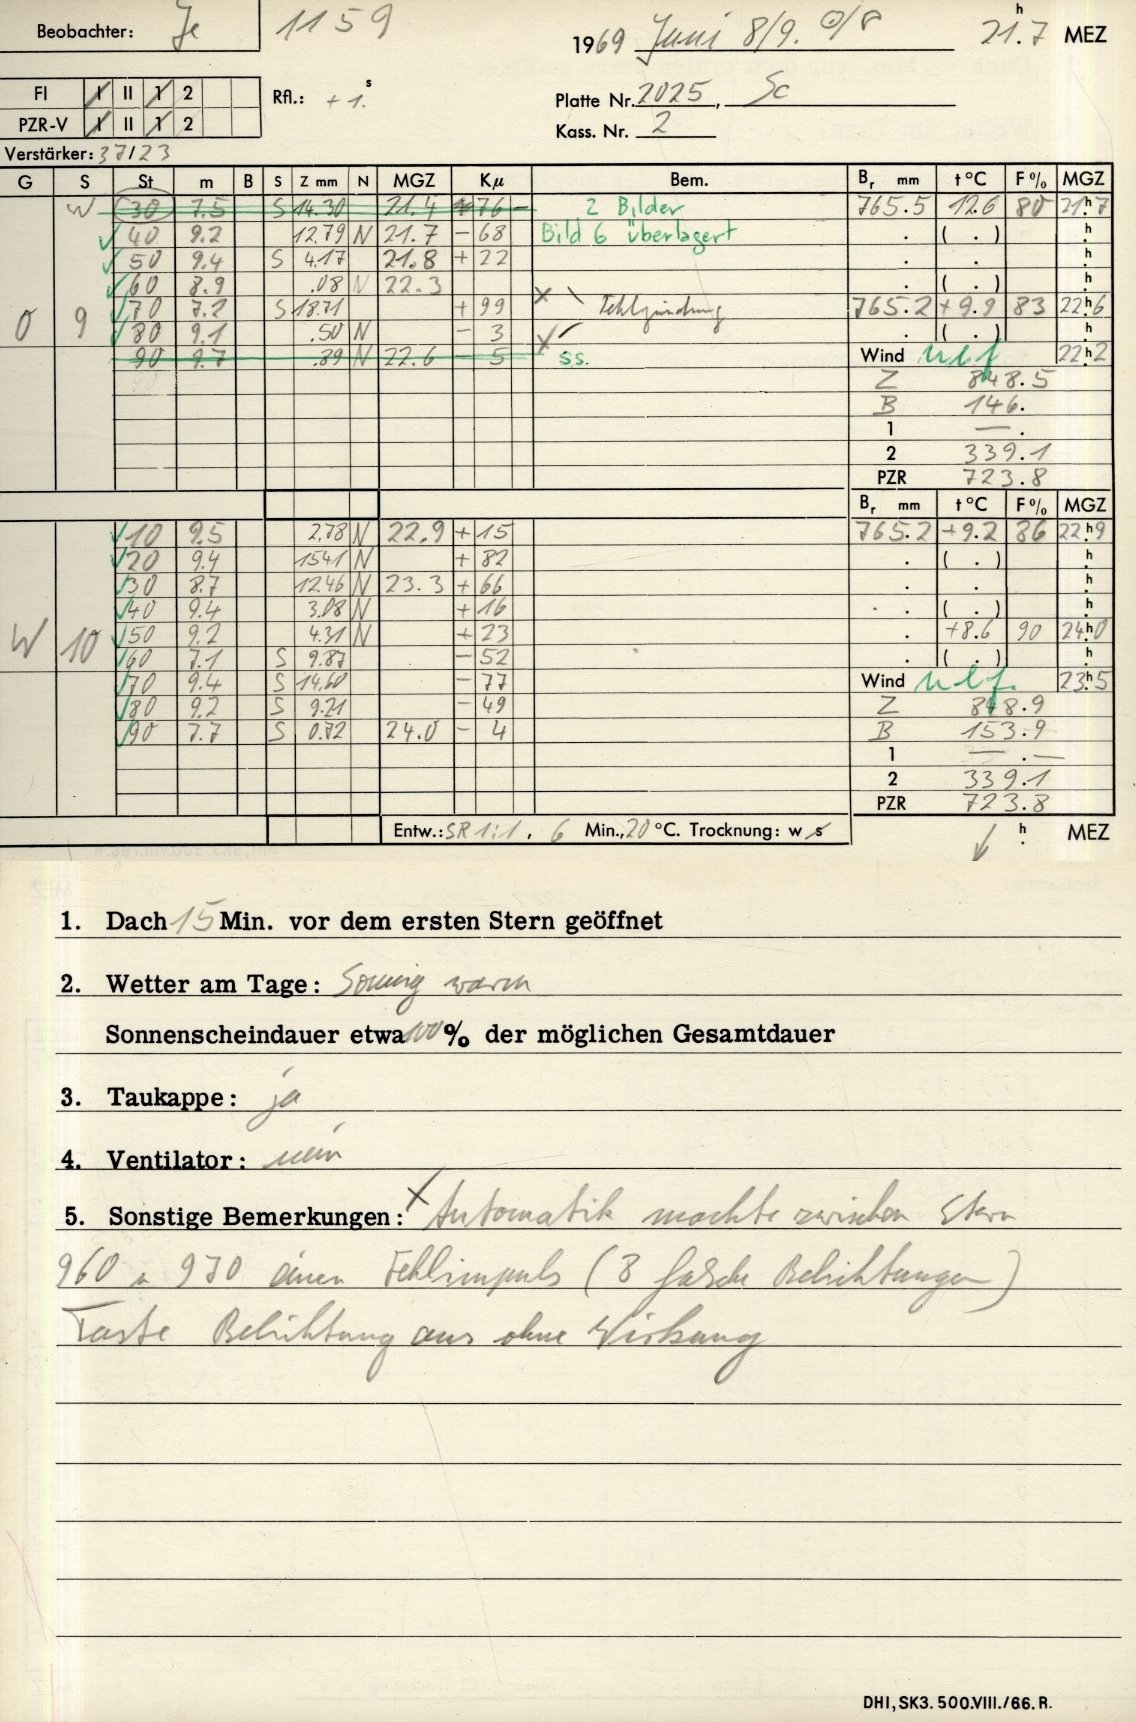 Beobachter: Je 1159
1969 Juni 8/9. 21h.7 MEZ
FI I II 1 2 Rfl.: +1.s
Platte Nr. 2025, Sc
PZR-V I II 1 2
Kass. Nr. 2
Verstärker: 37/23
G S St m B S Z mm N MGZ Kμ Bem. Br mm t°C F% MGZ
W 30 7.5 S 14.30 21.4 76 - 2 Bilder 765.5 12.6 80 21h7
40 9.2 12.79 N 21.7 - 68 Bild 6 überlagert . ( . ) h
50 9.4 S 4.17 21.8 + 22 . . h
60 8.9 .08 N 22.3 . ( . ) h
O 9 70 7.2 S 18.71 + 99 x Fehlzündung 765.2 +9.9 83 22h6
80 9.1 .50 N - 3 x . ( . ) h
90 9.7 .39 N 22.6 - 5 ss. Wind 22h2
Z 848.5
B 146.
1 — .
2 339.1
PZR 723.8
Br mm t°C F% MGZ
10 9.5 2.78 N 22.9 + 15 765.2 +9.2 86 22h9
20 9.4 15.41 N + 82 . ( . ) h
30 8.7 12.46 N 23.3 + 66 . . h
40 9.4 3.08 N + 16 . ( . ) h
W 10 50 9.2 4.31 N + 23 . +8.6 90 24h0
60 7.1 S 9.87 - 52 . ( . ) h
70 9.4 S 14.60 - 77 Wind 23h5
80 9.2 S 9.21 - 49 Z 848.9
90 7.7 S 0.72 24.0 - 4 B 153.9
1 — . —
2 339.1
PZR 723.8
Entw.: SR 1:1, 6 Min., 20 °C. Trocknung: w s h MEZ
1. Dach 15 Min. vor dem ersten Stern geöffnet
2. Wetter am Tage: Sonnig warm
Sonnenscheindauer etwa 100 % der möglichen Gesamtdauer
3. Taukappe: ja
4. Ventilator: nein
5. Sonstige Bemerkungen: x Automatik machte zwischen Stern
960 u 970 einen Fehlimpuls (8 falsche Belichtungen)
Taste Belichtung aus ohne Wirkung
DHI, SK3. 500.VIII./66. R.